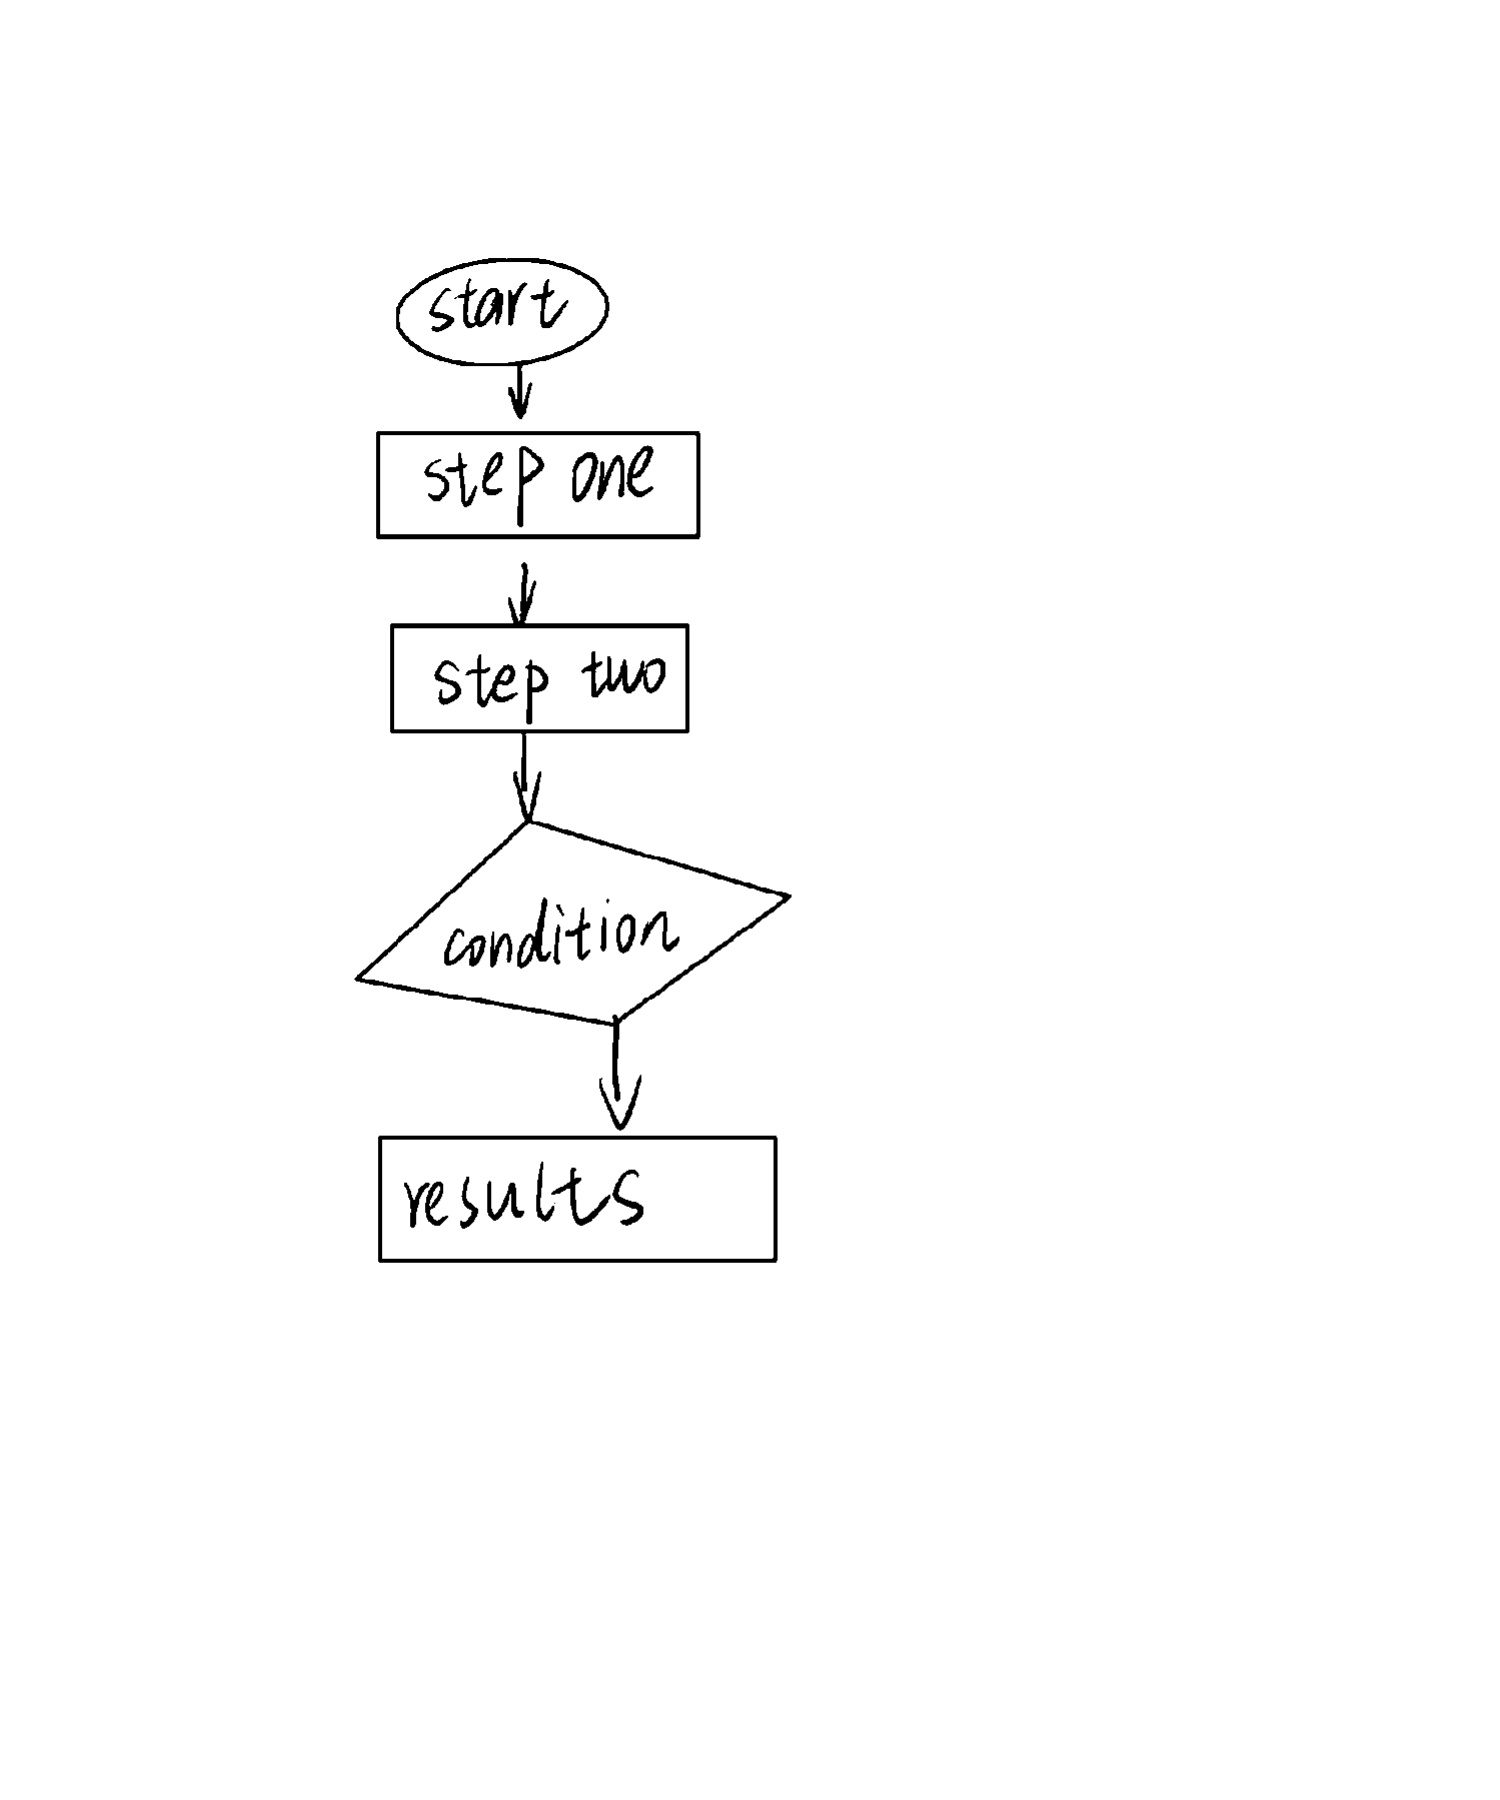 start
step one
step two
condition
results